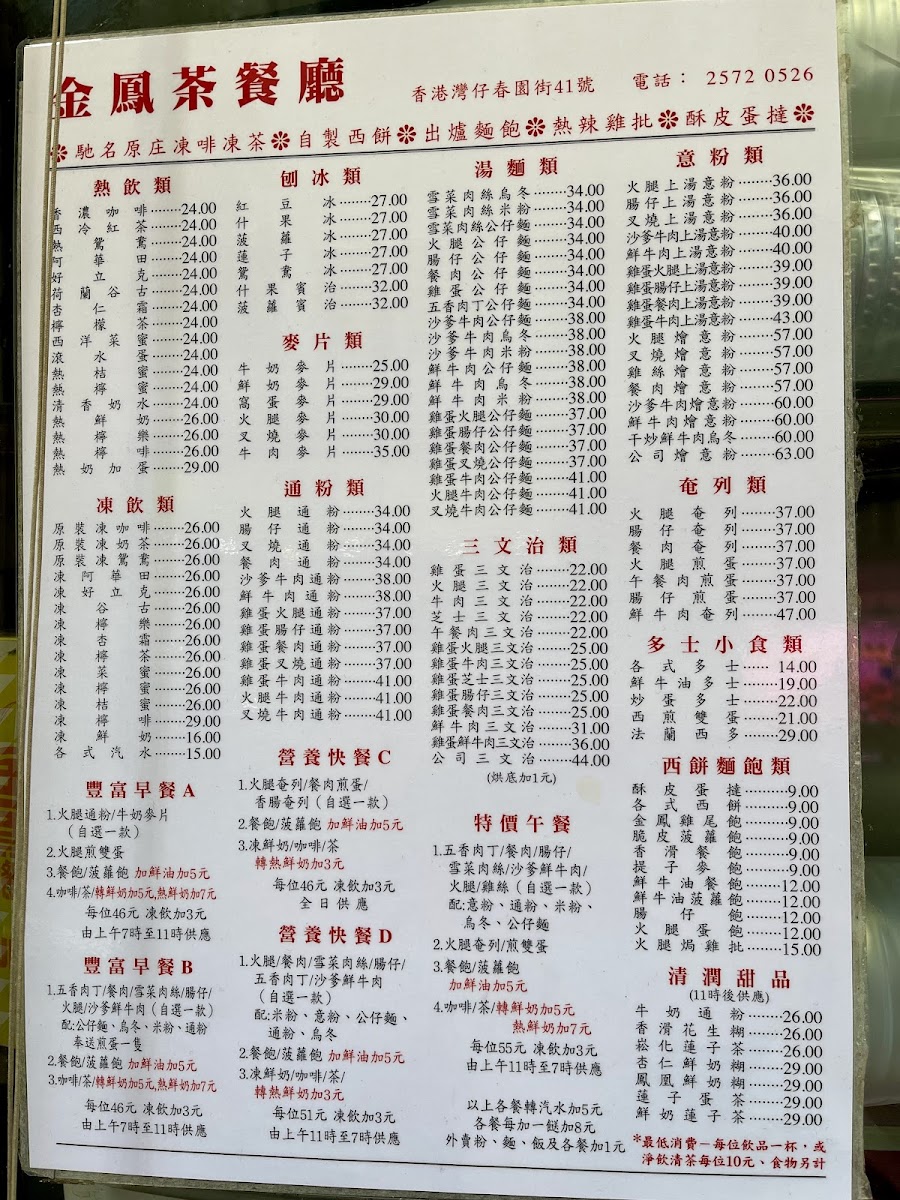 金鳳茶餐廳
香港灣仔春園街41號 電話： 2572 0526
❇馳名原庄凍啡凍茶❇自製西餅❇出爐麵飽❇熱辣雞批❇酥皮蛋撻❇
熱飲類
香濃咖啡········24.00
西冷紅茶········24.00
熱鴛鴦········24.00
阿華田········24.00
好立克········24.00
荷蘭谷古········24.00
杏仁霜········24.00
檸檬茶········24.00
西洋菜蜜········24.00
滾水蛋········24.00
熱桔蜜········24.00
熱檸蜜········24.00
清香奶水········24.00
熱鮮奶········26.00
熱檸樂········26.00
熱檸啡········26.00
熱奶加蛋········29.00
凍飲類
原裝凍咖啡·······26.00
原裝凍奶茶·······26.00
原裝凍鴛鴦·······26.00
凍阿華田·······26.00
凍好立克·······26.00
凍谷古·······26.00
凍檸樂·······26.00
凍杏霜·······26.00
凍檸茶·······26.00
凍菜蜜·······26.00
凍檸蜜·······26.00
凍桔蜜·······26.00
凍檸啡·······29.00
凍鮮奶·······16.00
各式汽水·······15.00
豐富早餐A
1.火腿通粉/牛奶麥片
（自選一款）
2.火腿煎雙蛋
3.餐飽/菠蘿飽 加鮮油加5元
4.咖啡/茶/轉鮮奶加5元,熱鮮奶加7元
每位46元 凍飲加3元
由上午7時至11時供應
豐富早餐B
1.五香肉丁/餐肉/雪菜肉絲/腸仔/
火腿/沙爹鮮牛肉（自選一款）
配:公仔麵、烏冬、米粉、通粉
奉送煎蛋一隻
2.餐飽/菠蘿飽 加鮮油加5元
3.咖啡/茶/轉鮮奶加5元,熱鮮奶加7元
每位46元 凍飲加3元
由上午7時至11時供應
刨冰類
紅豆冰·······27.00
什果冰·······27.00
菠蘿冰·······27.00
蓮子冰·······27.00
鴛鴦冰·······27.00
什果賓治·······32.00
菠蘿賓治·······32.00
麥片類
牛奶麥片·······25.00
鮮奶麥片·······29.00
窩蛋麥片·······29.00
火腿麥片·······30.00
叉燒麥片·······30.00
牛肉麥片·······35.00
通粉類
火腿通粉·······34.00
腸仔通粉·······34.00
叉燒通粉·······34.00
餐肉通粉·······34.00
沙爹牛肉通粉·······38.00
鮮牛肉通粉·······38.00
雞蛋火腿通粉·······37.00
雞蛋腸仔通粉·······37.00
雞蛋餐肉通粉·······37.00
雞蛋叉燒通粉·······37.00
雞蛋牛肉通粉·······41.00
火腿牛肉通粉·······41.00
叉燒牛肉通粉·······41.00
營養快餐C
1.火腿奄列/餐肉煎蛋/
香腸奄列（自選一款）
2.餐飽/菠蘿飽 加鮮油加5元
3.凍鮮奶/咖啡/茶
轉熱鮮奶加3元
每位46元 凍飲加3元
全日供應
營養快餐D
1.火腿/餐肉/雪菜肉絲/腸仔/
五香肉丁/沙爹鮮牛肉
（自選一款）
配:米粉、意粉、公仔麵、
通粉、烏冬
2.餐飽/菠蘿飽 加鮮油加5元
3.凍鮮奶/咖啡/茶/
轉熱鮮奶加3元
每位51元 凍飲加3元
由上午11時至7時供應
湯麵類
雪菜肉絲烏冬·······34.00
雪菜肉絲米粉·······34.00
雪菜肉絲公仔麵·······34.00
火腿公仔麵·······34.00
腸仔公仔麵·······34.00
餐肉公仔麵·······34.00
雞蛋公仔麵·······34.00
五香肉丁公仔麵·······34.00
沙爹牛肉公仔麵·······38.00
沙爹牛肉烏冬·······38.00
沙爹牛肉米粉·······38.00
鮮牛肉公仔麵·······38.00
鮮牛肉烏冬·······38.00
鮮牛肉米粉·······38.00
雞蛋火腿公仔麵·······37.00
雞蛋腸仔公仔麵·······37.00
雞蛋餐肉公仔麵·······37.00
雞蛋叉燒公仔麵·······37.00
雞蛋牛肉公仔麵·······41.00
火腿牛肉公仔麵·······41.00
叉燒牛肉公仔麵·······41.00
三文治類
雞蛋三文治·······22.00
火腿三文治·······22.00
牛肉三文治·······22.00
芝士三文治·······22.00
午餐肉三文治·······22.00
雞蛋火腿三文治·······25.00
雞蛋牛肉三文治·······25.00
雞蛋芝士三文治·······25.00
雞蛋腸仔三文治·······25.00
雞蛋餐肉三文治·······25.00
鮮牛肉三文治·······31.00
雞蛋鮮牛肉三文治·······36.00
公司三文治·······44.00
(烘底加1元)
特價午餐
1.五香肉丁/餐肉/腸仔/
雪菜肉絲/沙爹鮮牛肉/
火腿/雞絲（自選一款）
配:意粉、通粉、米粉、
烏冬、公仔麵
2.火腿奄列/煎雙蛋
3.餐飽/菠蘿飽
加鮮油加5元
4.咖啡/茶/轉鮮奶加5元
熱鮮奶加7元
每位55元 凍飲加3元
由上午11時至7時供應
以上各餐轉汽水加5元
各餐每加一餸加8元
外賣粉、麵、飯及各餐加1元
意粉類
火腿上湯意粉·······36.00
腸仔上湯意粉·······36.00
叉燒上湯意粉·······36.00
沙爹牛肉上湯意粉·······40.00
鮮牛肉上湯意粉·······40.00
雞蛋火腿上湯意粉·······39.00
雞蛋腸仔上湯意粉·······39.00
雞蛋餐肉上湯意粉·······39.00
雞蛋牛肉上湯意粉·······43.00
火腿燴意粉·······57.00
叉燒燴意粉·······57.00
雞絲燴意粉·······57.00
餐肉燴意粉·······57.00
沙爹牛肉燴意粉·······60.00
鮮牛肉燴意粉·······60.00
干炒鮮牛肉烏冬·······60.00
公司燴意粉·······63.00
奄列類
火腿奄列·······37.00
腸仔奄列·······37.00
餐肉奄列·······37.00
火腿煎蛋·······37.00
午餐肉煎蛋·······37.00
腸仔煎蛋·······37.00
鮮牛肉奄列·······47.00
多士小食類
各式多士······14.00
鮮牛油多士·······19.00
炒蛋多士·······22.00
西煎雙蛋·······21.00
法蘭西多·······29.00
西餅麵飽類
酥皮蛋撻·········9.00
各式西餅·········9.00
金鳳雞尾飽·········9.00
脆皮菠蘿飽·········9.00
香滑餐飽·········9.00
提子麥飽·········9.00
鮮牛油餐飽·······12.00
鮮牛油菠蘿飽·······12.00
腸仔飽·······12.00
火腿蛋飽·······12.00
火腿焗雞批·······15.00
清潤甜品
(11時後供應)
牛奶通粉·······26.00
香滑花生糊·······26.00
崧化蓮子茶·······26.00
杏仁鮮奶糊·······29.00
鳳凰鮮奶糊·······29.00
蓮子蛋茶·······29.00
鮮奶蓮子茶·······29.00
*最低消費－每位飲品一杯，或
淨飲清茶每位10元、食物另計